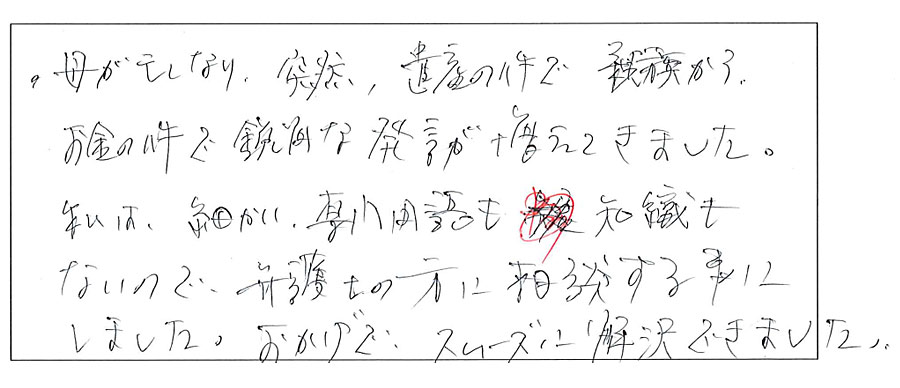 。母が亡くなり、突然、遺産の件で親族から、
お金の件で鋭角な発言が増えてきました。
私は、細かい、専門用語も知識も
ないので、弁護士の方に相談する事に
しました。おかげで、スムーズに解決できました。